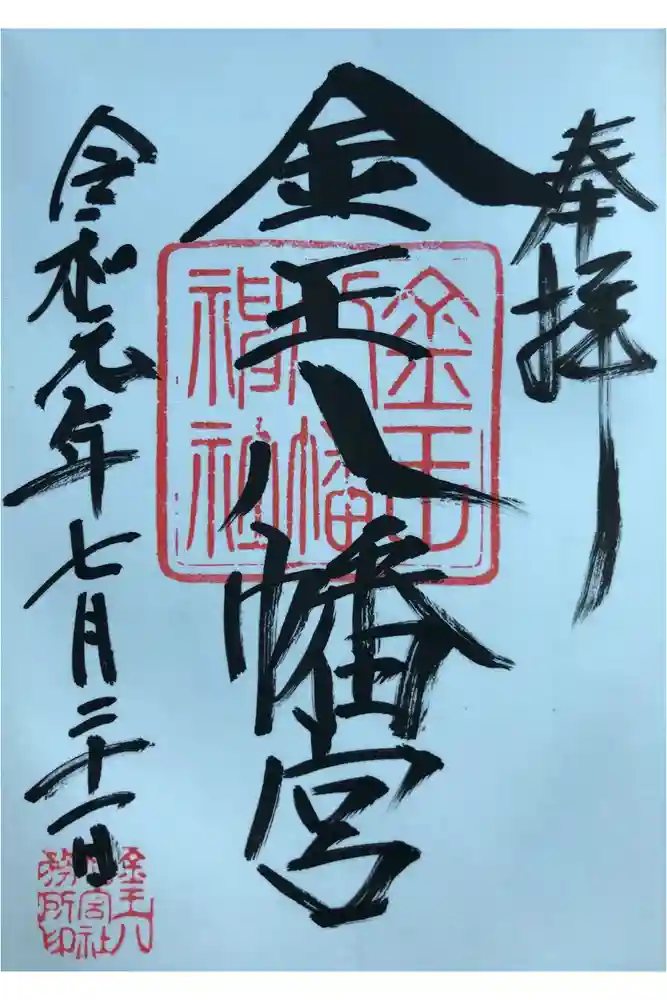 奉拝
金王八幡宮
令和元年七月二十一日
金王
八幡
神社
金王八
幡宮社
務所印